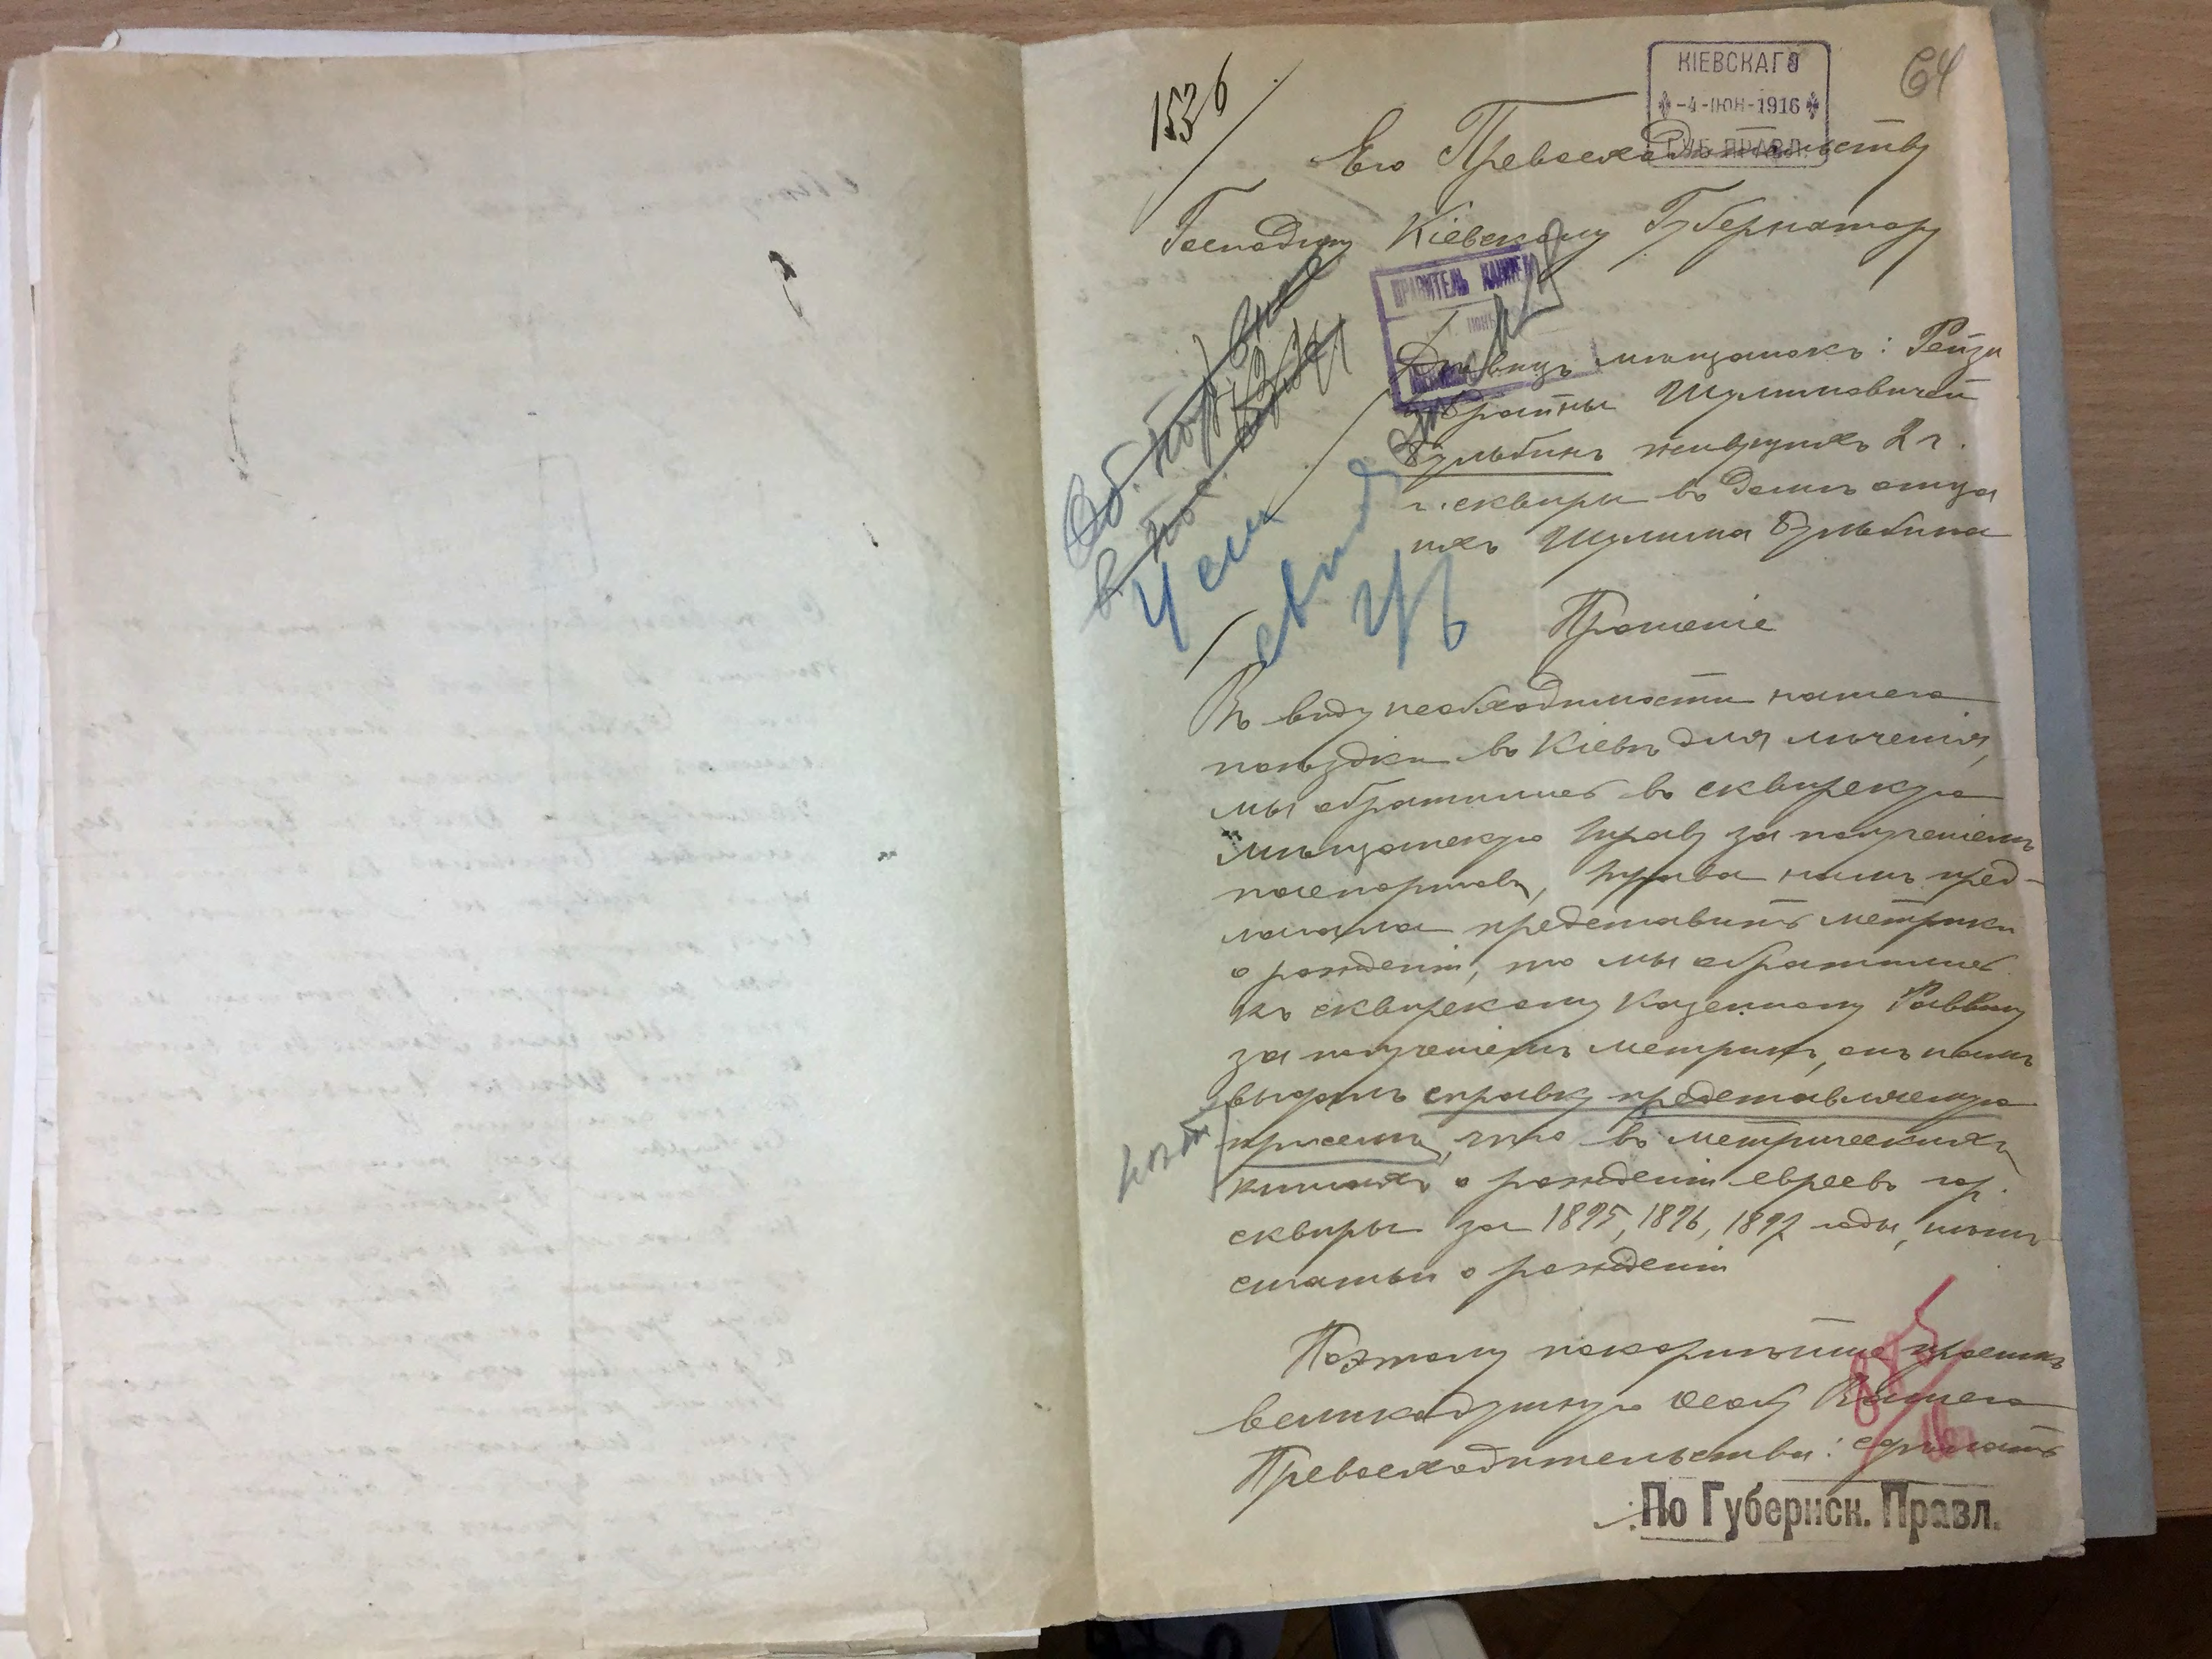 1536
КІЕВСКАГО
-4-ІЮН-1916
ГУБ. ПРАВЛ.
64
Его Превосходительству
Господину Кіевскому Губернатору
ПРАВИТЕЛЬ
ІЮН
Дѣвицъ мѣщанокъ: Рейзи
и Брайны Шулимовичей
Бульбинъ живущихъ 2 г.
г. Сквиры въ домѣ отца
ихъ Шулима Бульбина
Прошеніе
Въ виду необходимости нашего
поѣздки въ Кіевъ для лѣченія,
мы обратились въ Сквирскую
мѣщанскую Управу за полученіемъ
паспортовъ, Управа намъ пред-
лагала представить метрики
о рожденіи, то мы обратились
къ Сквирскому Казенному Раввину
за полученіемъ метрикъ, онъ намъ
выдалъ справку представляемую
при семъ, что въ метрическихъ
книгахъ о рожденіи евреевъ гор.
Сквиры за 1895, 1896, 1897 годы, нѣтъ
статьи о рожденіи
Поэтому покорнѣйше просимъ
великодушную особу Вашего
Превосходительства: сдѣлать
По Губернск. Правл.